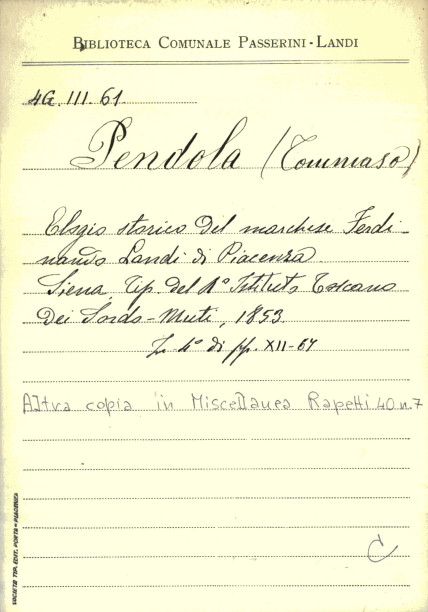 BIBLIOTECA COMUNALE PASSERINI-LANDI
4G. III. 61
Pendola (Tommaso)
Elogio storico del marchese Ferdi
nando Landi di Piacenza
Siena, Tip. del R° Istituto Toscano
dei Sordo-Muti, 1853.
4° di pp. XII-67
Altra copia in Miscellanea Rapetti 40 n. 7
C
SOCIETÀ TIP. EDIT. PORTA - PIACENZA